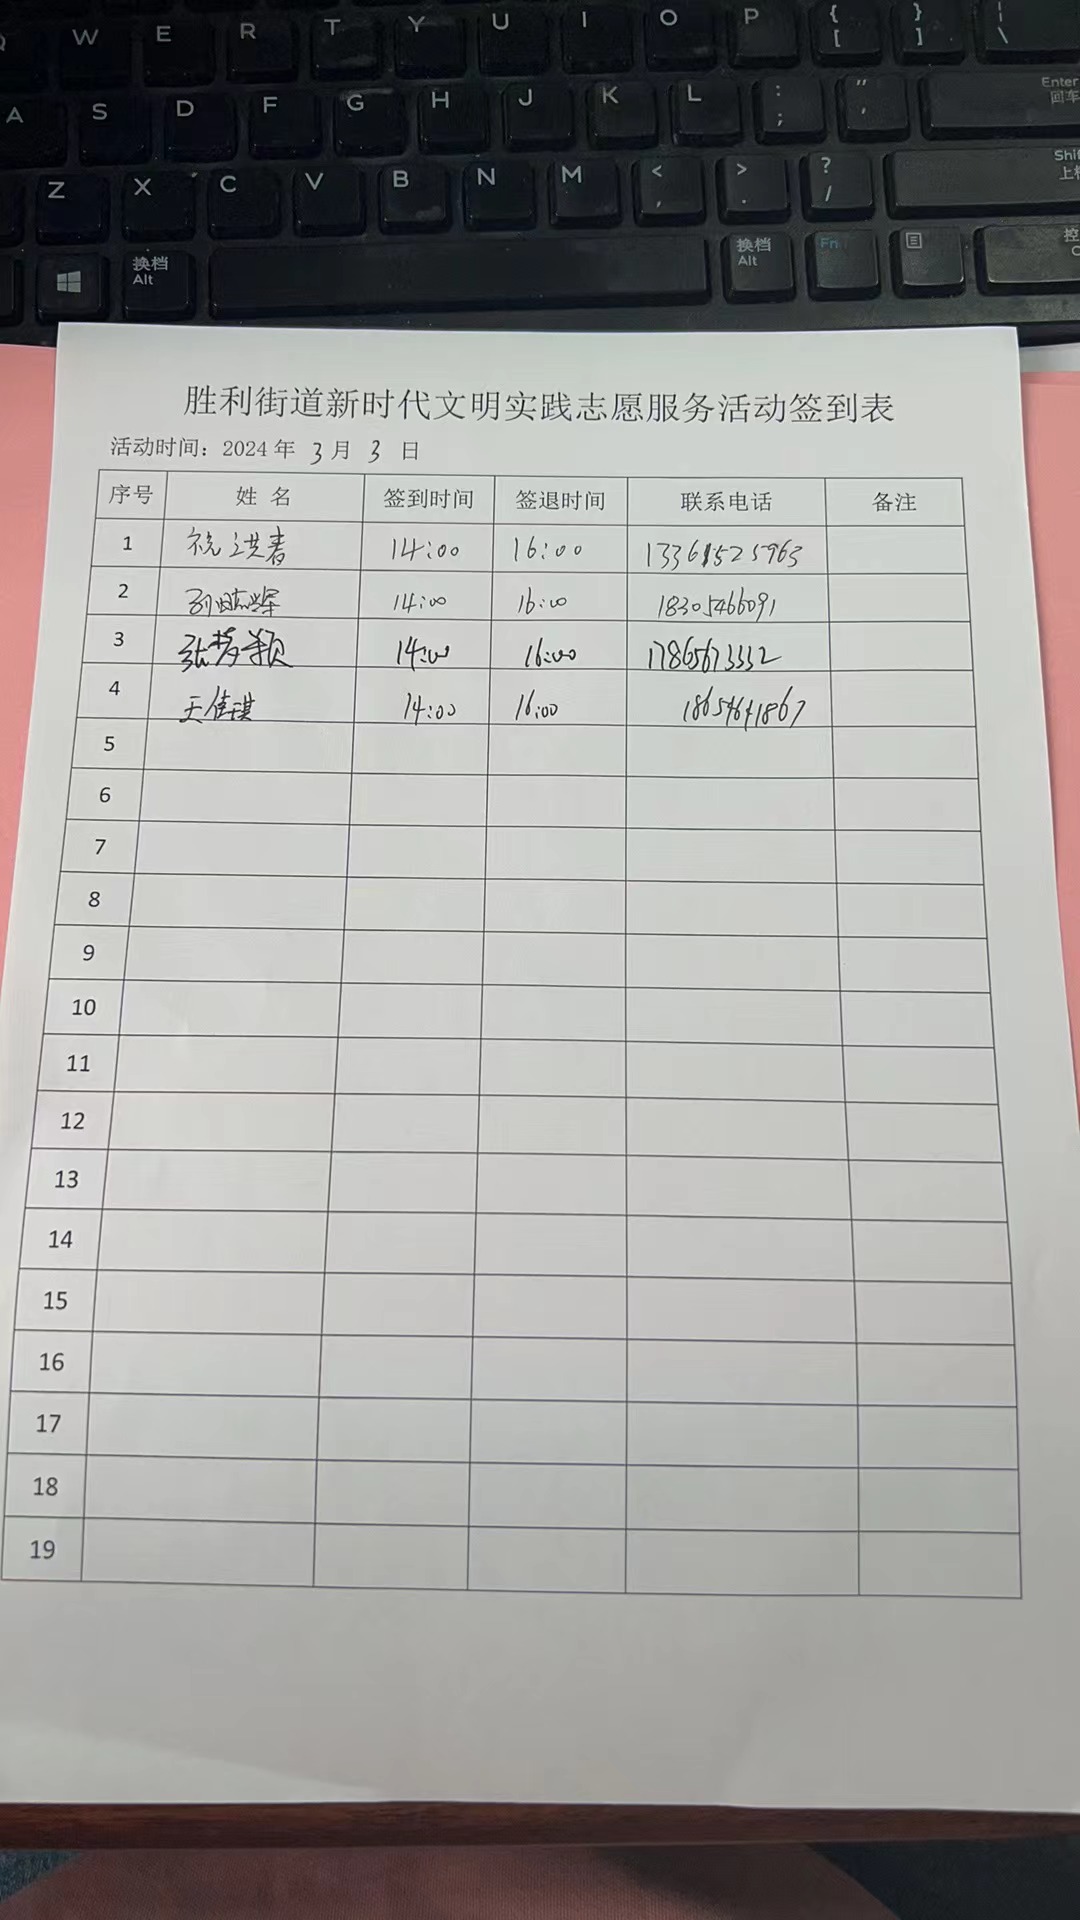 W E R T Y U I O P { [ } ] | \
A S D F G H J K L : ; " ' Enter 回车
Z X C V B N M < , > . ? / Shi 上档
换档 Alt 换档 Alt Fn 控
胜利街道新时代文明实践志愿服务活动签到表
活动时间：2024 年 3 月 3 日
序号 姓 名 签到时间 签退时间 联系电话 备注
1 祝洪春 14:00 16:00 13361525963
2 14:00 16:00 18305466091
3 张梦颖 14:00 16:00 17865673332
4 王佳琪 14:00 16:00 18654641867
5
6
7
8
9
10
11
12
13
14
15
16
17
18
19